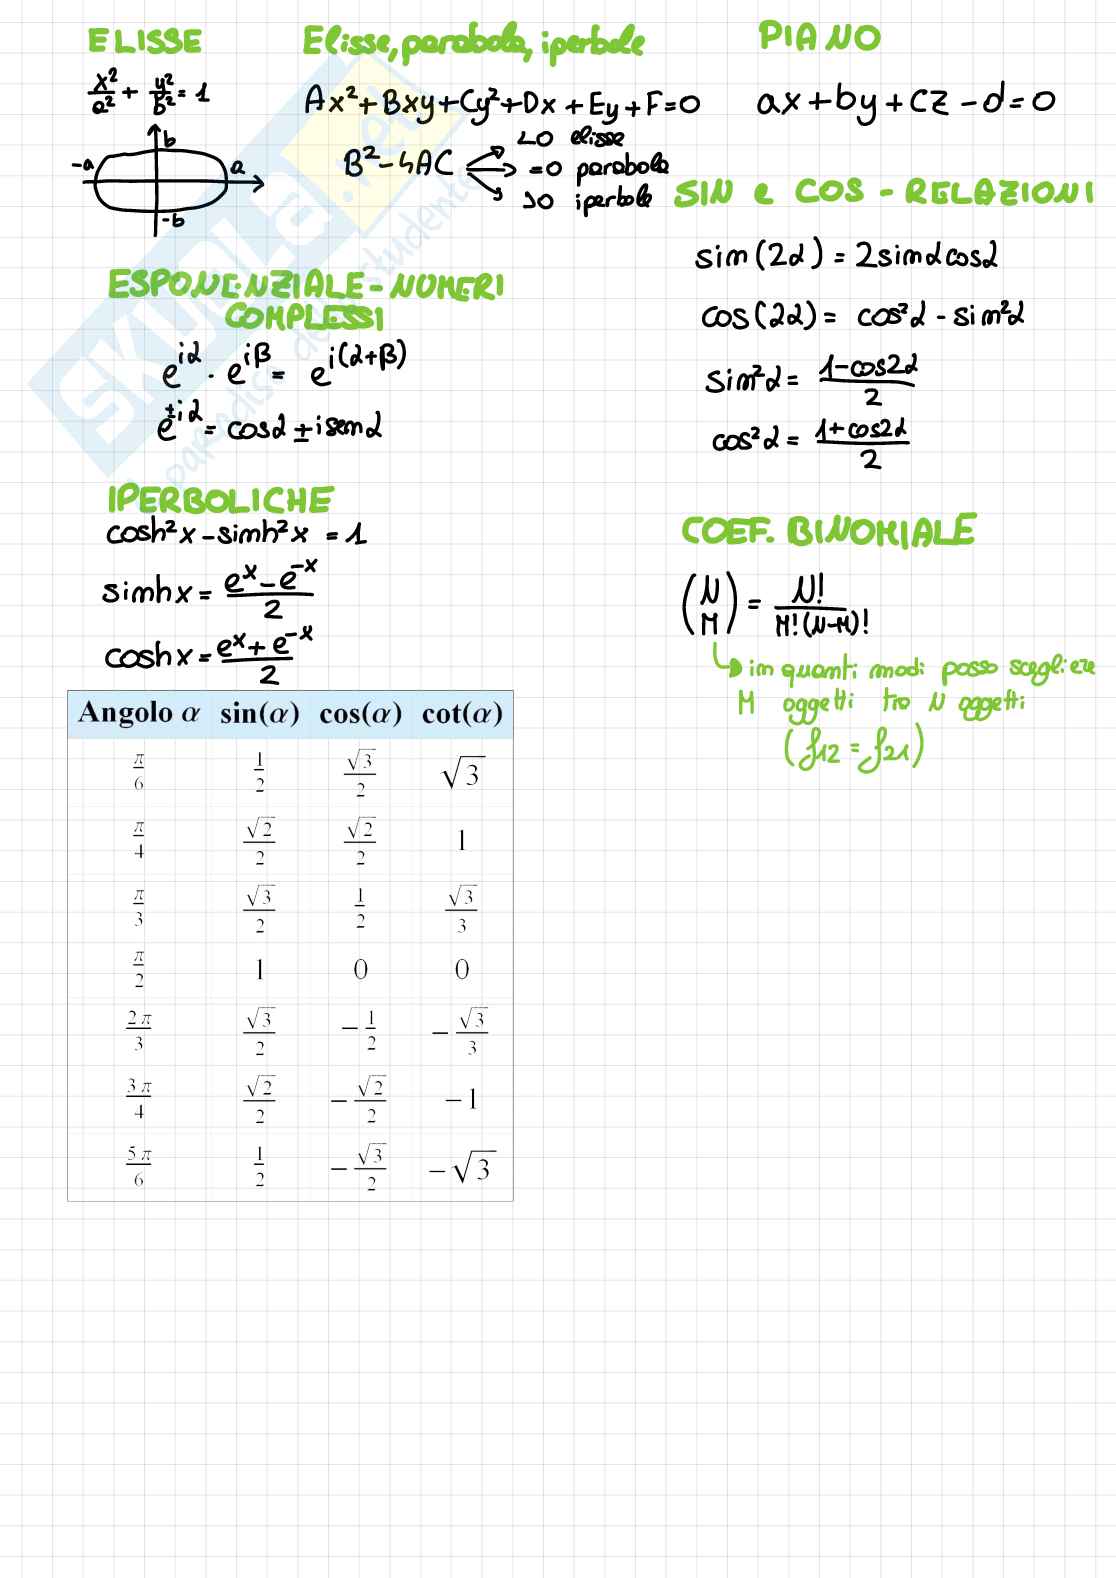 ELISSE
x²/a² + y²/b² = 1
b
-a a
-b
Elisse, parabola, iperbole
Ax²+Bxy+Cy²+Dx+Ey+F=0
B²-4AC
<0 elisse
=0 parabola
>0 iperbole
PIANO
ax+by+cz-d=0
SIN e COS - RELAZIONI
sin(2α)=2sinαcosα
cos(2α)= cos²α - sin²α
sin²α = 1-cos2α/2
cos²α = 1+cos2α/2
ESPONENZIALE - NUMERI
COMPLESSI
e^iα · e^iβ = e^i(α+β)
e^±iα = cosα ± i senα
IPERBOLICHE
cosh²x - sinh²x = 1
sinhx = e^x - e^-x/2
coshx = e^x + e^-x/2
COEF. BINOMIALE
(N M) = N!/M!(N-M)!
in quanti modi posso scegliere
M oggetti tra N oggetti
(f12 = f21)
Angolo α sin(α) cos(α) cot(α)
π/6 1/2 √3/2 √3
π/4 √2/2 √2/2 1
π/3 √3/2 1/2 √3/3
π/2 1 0 0
2π/3 √3/2 -1/2 -√3/3
3π/4 √2/2 -√2/2 -1
5π/6 1/2 -√3/2 -√3
SKUOLA.net
paradiso dello studente